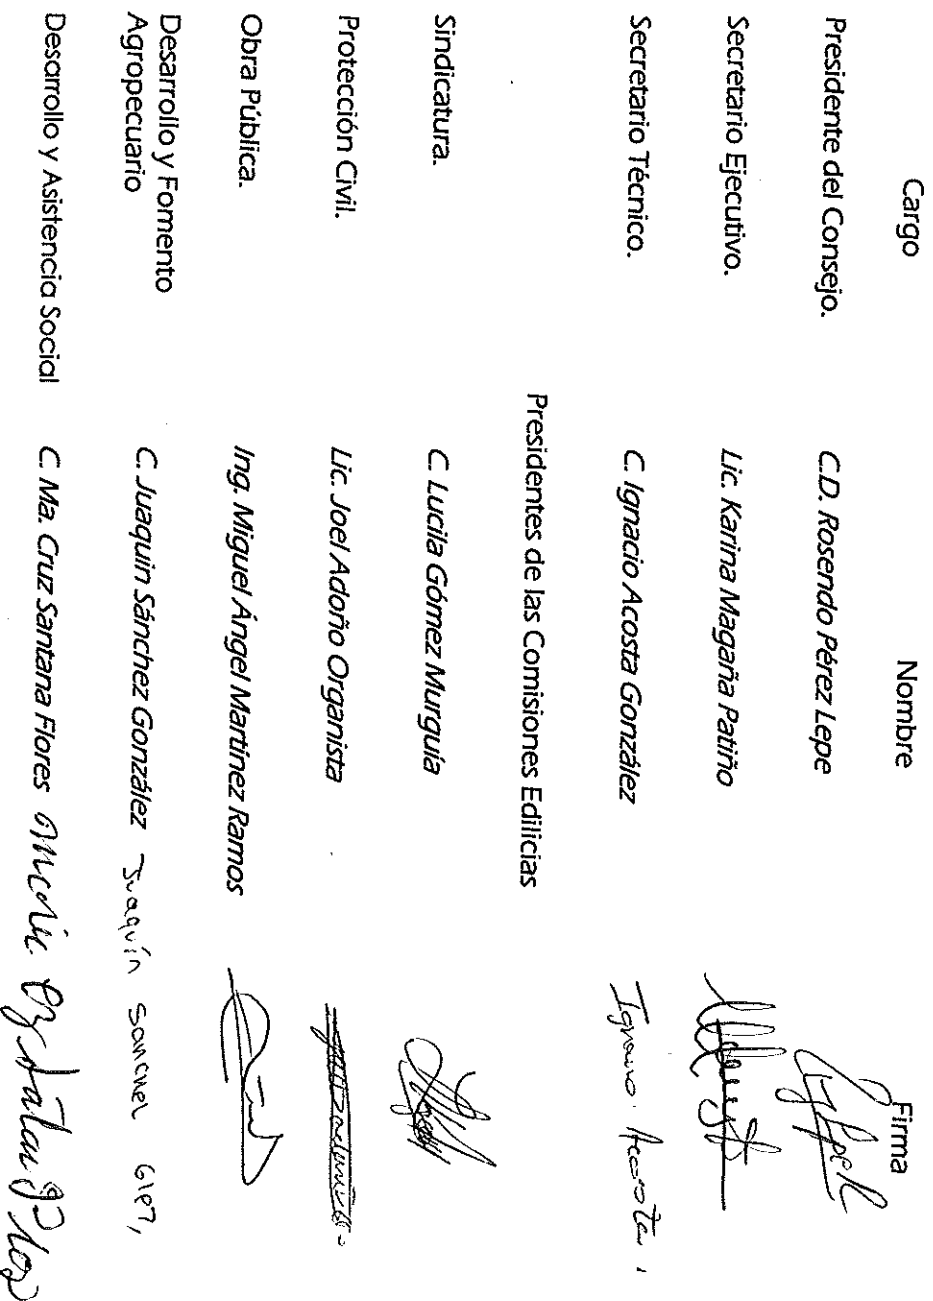 Cargo Nombre Firma
Presidente del Consejo. C.D. Rosendo Pérez Lepe
Secretario Ejecutivo. Lic. Karina Magaña Patiño
Secretario Técnico. C. Ignacio Acosta González Ignacio Acosta
Presidentes de las Comisiones Edilicias
Sindicatura. C. Lucila Gómez Murguía
Protección Civil. Lic. Joel Adoño Organista
Obra Pública. Ing. Miguel Ángel Martínez Ramos
Desarrollo y Fomento
Agropecuario C. Juaquin Sánchez González Juaquín Sanchez
Desarrollo y Asistencia Social C. Ma. Cruz Santana Flores